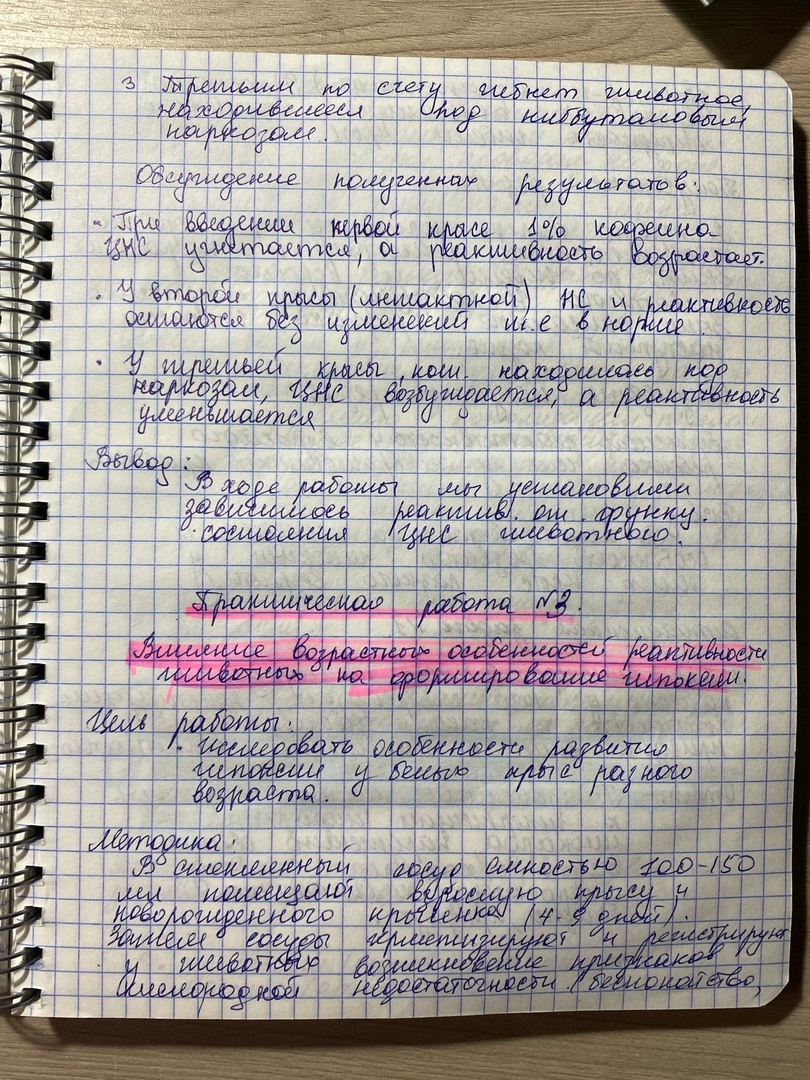 3 Третьим по счету гибнет животное,
находившееся под нибутановым
наркозом.
Обсуждение полученных результатов:
- При введении первой крысе 1% кофеина
ЦНС угнетается, а реактивность возрастает.
• У второй крысы (интактной) НС и реактивность
остаются без изменений т.е в норме.
• У третьей крысы, кот. находилась под
наркозом, ЦНС возбуждается, а реактивность
уменьшается
Вывод:
В ходе работы мы установили
зависимось реактив. от функц.
состояния ЦНС животного.
Практическая работа №3.
Влияние возрастных особенностей реактивности
животных на формирование гипоксии.
Цель работы:
исследовать особенности развития
гипоксии у белых крыс разного
возраста.
Методика:
В стеклянный сосуд емкостью 100-150
мл помещают взрослую крысу и
новорожденного крысенка (4- дней).
Затем сосуды герметизируют и регистрируют
у животных возникновение признаков
кислородной недостаточности (беспокойство,